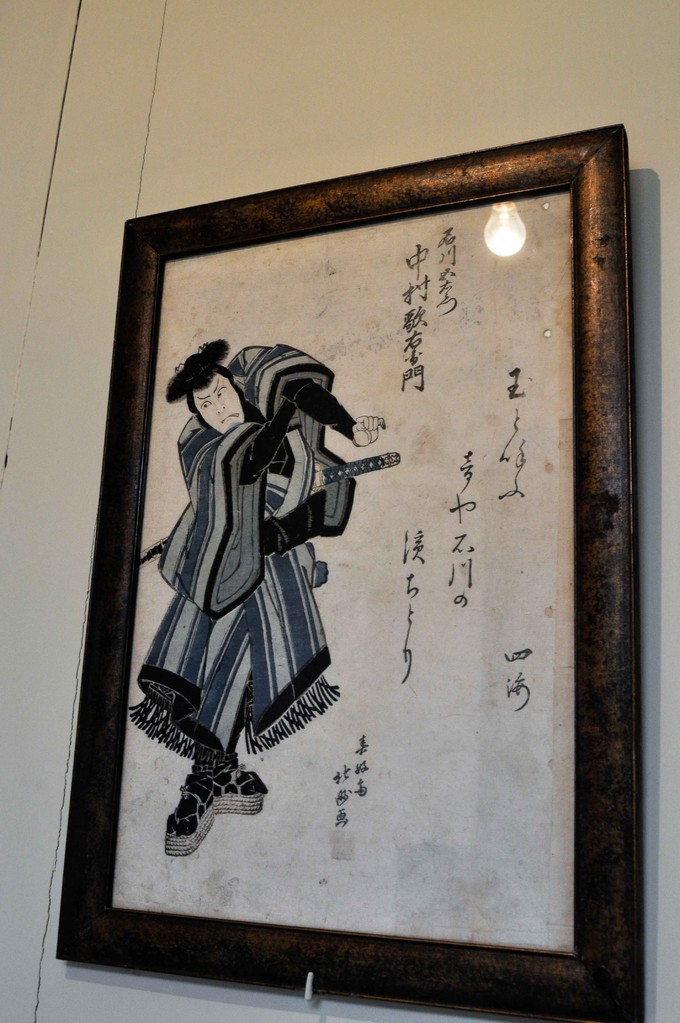 玉と呼ふ
音や石川の
濱ちとり
四海
石川五右衛門
中村歌右衛門
春好斎
北洲画